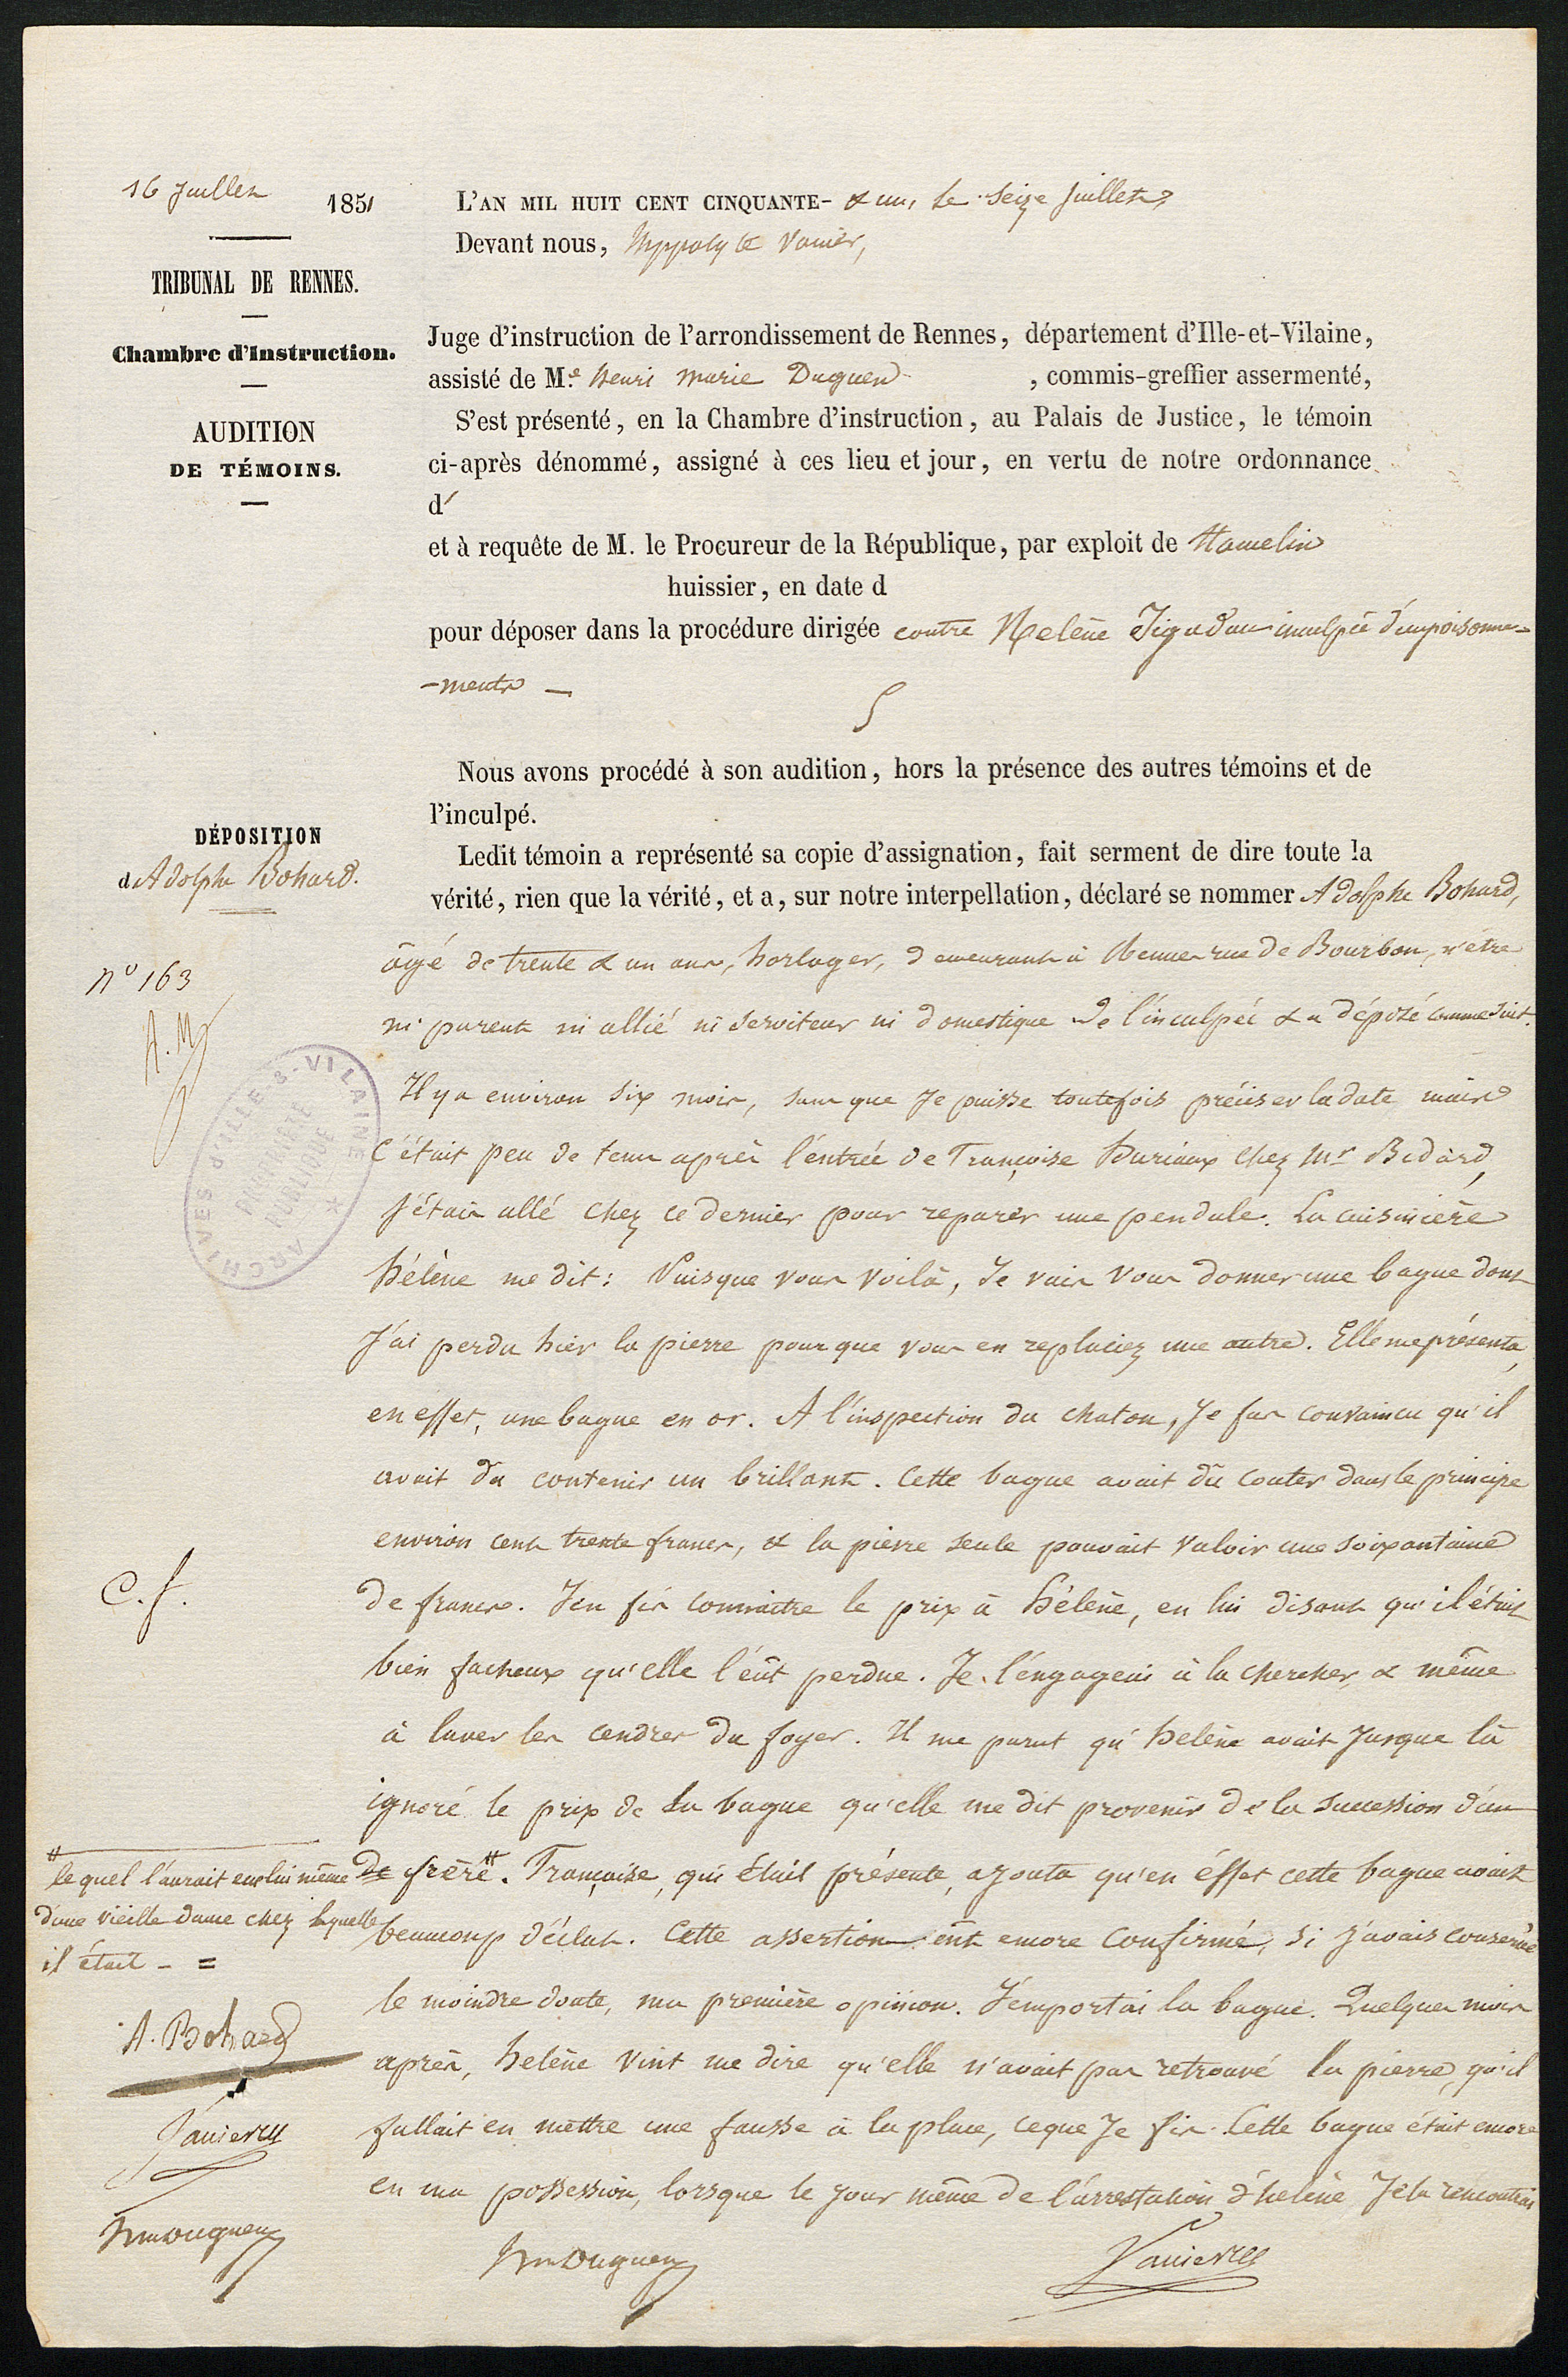 16 Juillet 1851
TRIBUNAL DE RENNES.
Chambre d'Instruction.
AUDITION
DE TÉMOINS.
L'AN MIL HUIT CENT CINQUANTE- & un, le seize juillet,
Devant nous, Hyppolyte Vannier,
Juge d'instruction de l'arrondissement de Rennes, département d'Ille-et-Vilaine,
assisté de Me. henri marie Duguen , commis-greffier assermenté,
S'est présenté, en la Chambre d'instruction, au Palais de Justice, le témoin
ci-après dénommé, assigné à ces lieu et jour, en vertu de notre ordonnance
d'
et à requête de M. le Procureur de la République, par exploit de Hamelin
huissier, en date d
pour déposer dans la procédure dirigée contre Helène Jigadau inculpée d'empoisonne-
-ments -
Nous avons procédé à son audition, hors la présence des autres témoins et de
l'inculpé.
DÉPOSITION
d'Adolphe Bohard.
Ledit témoin a représenté sa copie d'assignation, fait serment de dire toute la
vérité, rien que la vérité, et a, sur notre interpellation, déclaré se nommer Adolphe Bohard,
âgé de trente & un ans, horloger, demeurant à Rennes rue de Bourbon, n'être
ni parent ni allié ni serviteur ni domestique de l'inculpée & a déposé comme suit.
n° 163
ARCHIVES d'ILLE-&-VILAINE
PROPRIÉTÉ PUBLIQUE
Il y a environ six mois, sans que Je puisse toutefois préciser la date mais
C'était peu de tems après l'entrée de Françoise Huriaux chez Mr Bidard,
J'étais allé chez ce dernier pour reparer une pendule. La cuisinière
hélène me dit: Puisque vous voilà, Je vais vous donner une bague dont
J'ai perdu hier la pierre pour que vous en replaciez une autre. Elle me présenta,
en effet, une bague en or. A l'inspection du chaton, Je fus convaincu qu'il
avait du contenir un brillant. Cette bague avait dû couter dans le principe
environ cent trente francs, & la pierre seule pouvait valoir une soixantaine
C.f.
de francs. J'en fis connaitre le prix à hélène, en lui disant qu'il était
bien facheux qu'elle l'eût perdue. Je l'engageais à la chercher, & même
à laver les cendres du foyer. Il me parut qu'helène avait Jusque là
ignoré le prix de la bague qu'elle me dit provenir de la succession d'un
de frère#. Françoise, qui était présente, ajouta qu'en éffet cette bague avait
beaucoup d'éclat. Cette assertion eut encore confirmé, si j'avais conservé
le moindre doute, ma première opinion. J'emportai la bague. Quelques mois
après, helène vint me dire qu'elle n'avait pas retrouvé la pierre, qu'il
fallait en mettre une fausse à la place, ce que Je fis. Cette bague était encore
en ma possession, lorsque le jour même de l'arrestation d'helène Je la rencontrai
# lequel l'aurait eue lui même
d'une vieille dame chez laquelle
il était - =
A. Bohard
Vannier
hm Duguen
hm Duguen
Vannier